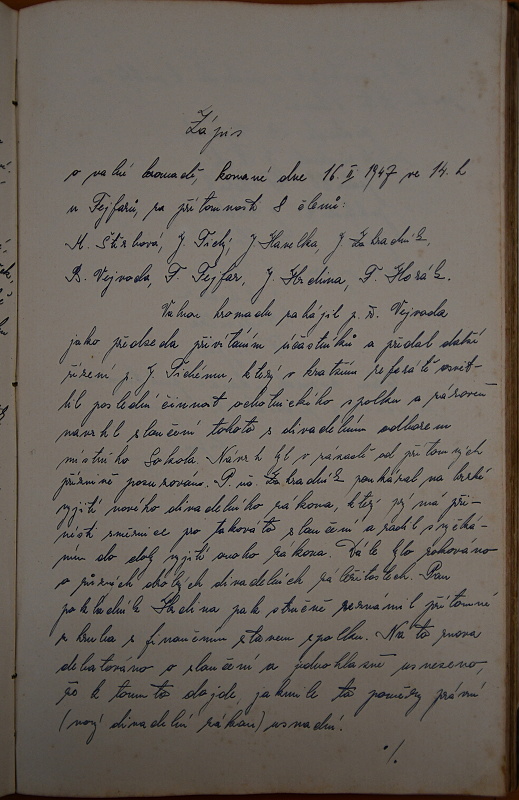 Zápis
o valné hromadě, konané dne 16. II. 1947 ve 14. h
u Fejfarů, za přítomnosti 8 členů:
J. Tichý, J. Havelka, J. Zahradník,
B. Vejvoda, F. Fejfar, J. Hrdina, F. Horák.
Valnou hromadu zahájil p. ř. Vejvoda
jako předseda přivítáním účastníků a předal další
řízení p. J. Tichému, který v kratším referátě osvět-
lil poslední činnost ochotnického spolku a zároveň
navrhl sloučení tohoto s divadelním odborem
místního Sokola. Návrh byl v zásadě od přítomných
příznivě posuzován. P. Zahradník poukázal na brzké
vyjití nového divadelního zákona, který prý má při-
nésti směrnice pro takováto sloučení a radil s vyčká-
ním do doby vyjití onoho zákona. Dále bylo rokováno
o různých drobných divadelních záležitostech. Pan
pokladník Hrdina pak stručně seznámil přítomné
z kruhu s finančním stavem spolku. Na to znova
debatováno o sloučení a jednohlasně usneseno,
že k tomuto dojde, jakmile to poměry právní
(nový divadelní zákon) usnadní.
./.